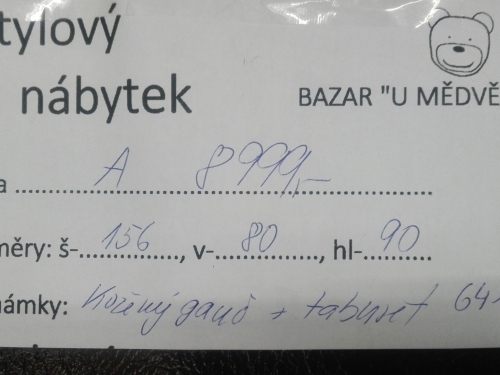 tylový
nábytek
BAZAR "U MĚDVĚ
a ........ A 8999,- ........
měry: š- 156, v- 80, hl- 90
námky: Kožený gauč + taburet 64-